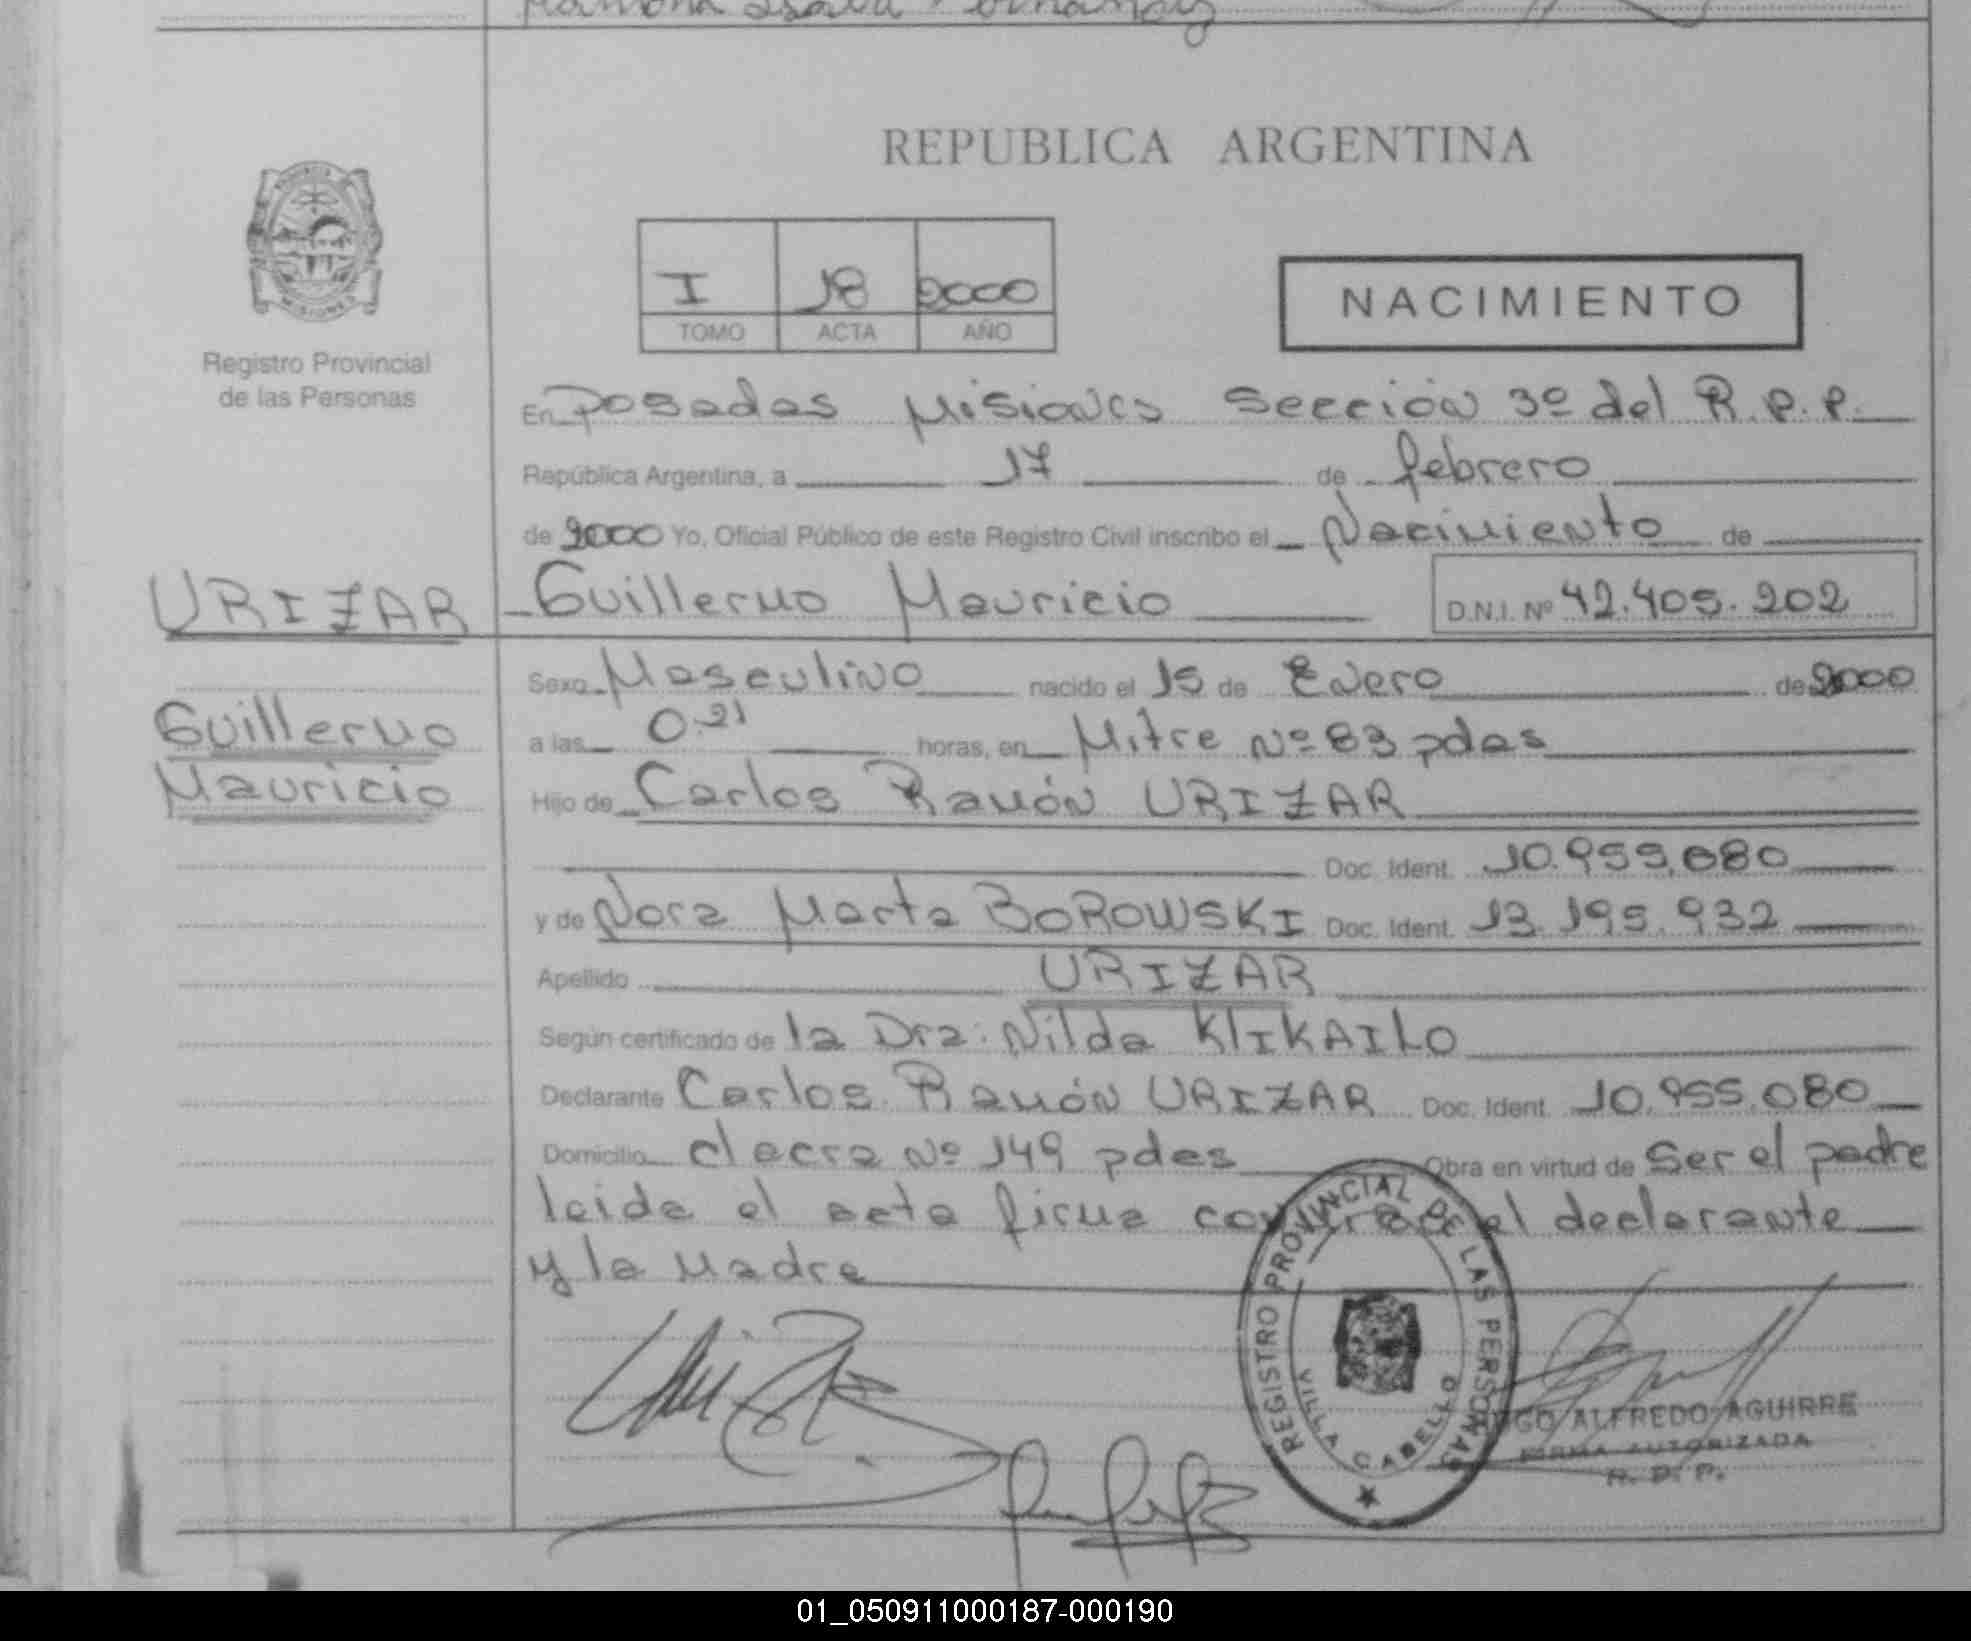 REPUBLICA ARGENTINA
MISIONES
Registro Provincial
de las Personas
I 18 2000
TOMO ACTA AÑO
NACIMIENTO
En Posadas Misiones Sección 3º del R.P.P.
República Argentina, a 17 de febrero
de 2000 Yo, Oficial Público de este Registro Civil inscribo el Nacimiento de
URIZAR
Guillermo Mauricio
D.N.I. Nº 42.405.202
Guillermo
Mauricio
Sexo Masculino nacido el 15 de Enero de 2000
a las 0.21 horas, en Mitre Nº 83 pdas
Hijo de Carlos Ramón URIZAR
Doc. Ident. 10.955.080
y de Nora Marta BOROWSKI Doc. Ident. 13.195.932
Apellido URIZAR
Según certificado de la Dra. Nilda KLIKAILO
Declarante Carlos Ramón URIZAR Doc. Ident. 10.955.080
Domicilio chacra Nº 149 pdas Obra en virtud de Ser el padre
leida el acta firma el declarante
y la Madre
REGISTRO PROVINCIAL DE LAS PERSONAS
VILLA CABELLO
HUGO ALFREDO AGUIRRE
FIRMA AUTORIZADA
R. P. P.
01_050911000187-000190